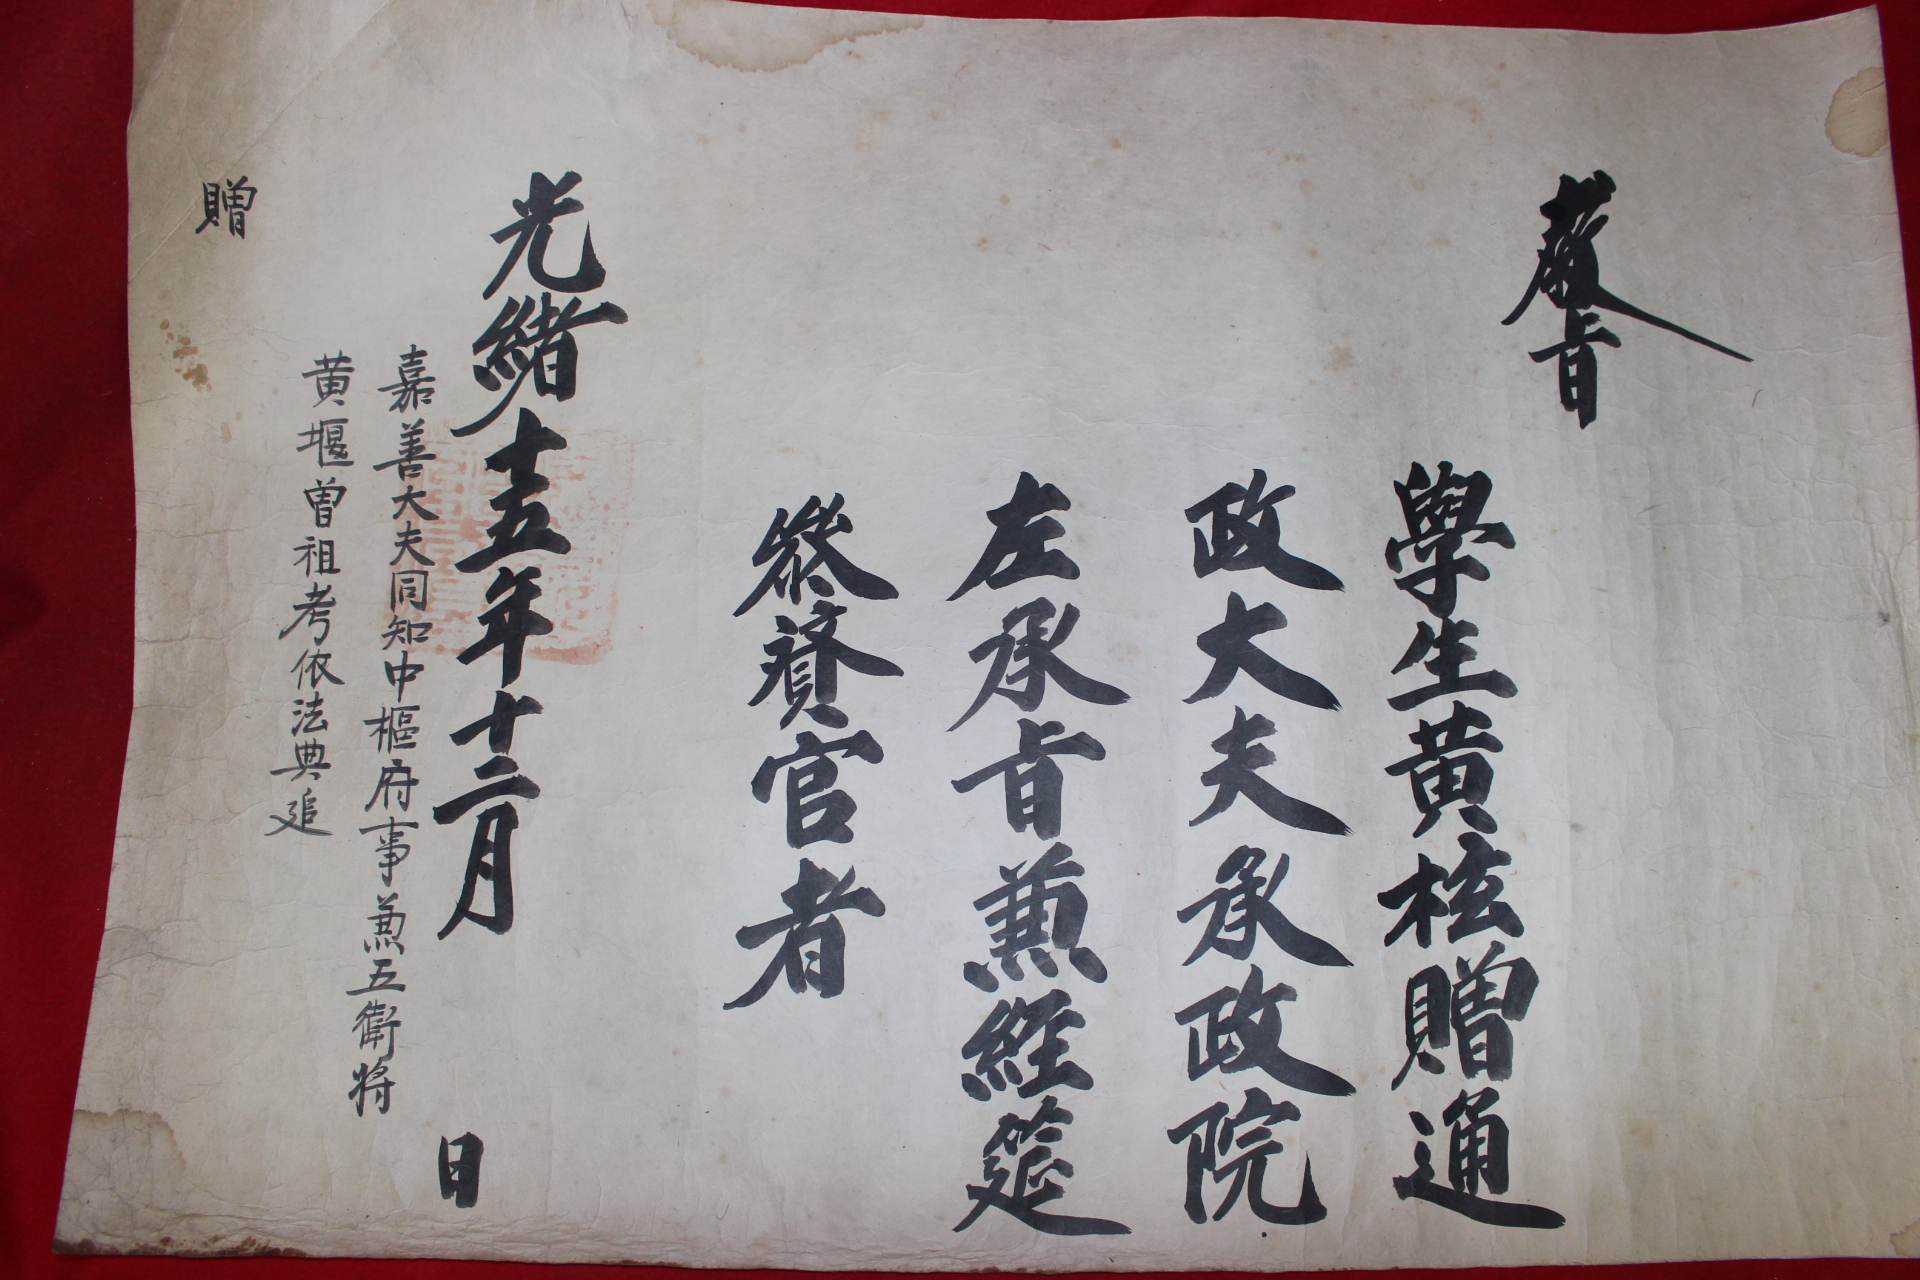 敎旨
學生黃柉贈通
政大夫承政院
左承旨兼經筵
叅贊官者
光緖十五年十二月 日
嘉善大夫同知中樞府事兼五衛將
黃堰曾祖考依法典追
贈